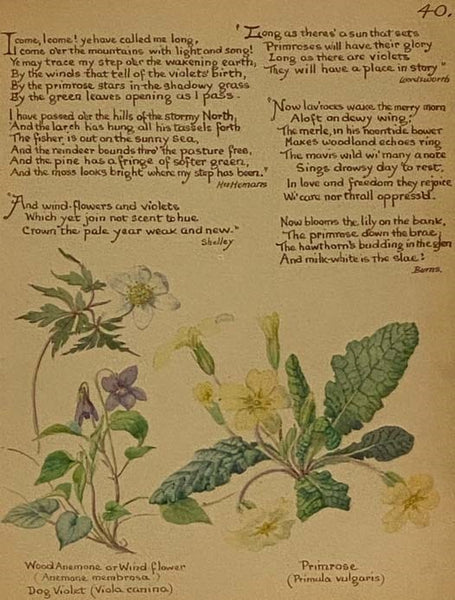 40.
I come, I come! ye have called me long,
I come o'er the mountains with light and song!
Ye may trace my step o'er the wakening earth,
By the winds that tell of the violets' birth,
By the primrose stars in the shadowy grass
By the green leaves opening as I pass.
I have passed o'er the hills of the stormy North,
And the larch has hung all his tassels forth
The fisher is out on the sunny sea,
And the reindeer bounds thro' the pasture free,
And the pine has a fringe of softer green,
And the moss looks bright where my step has been."
Mrs Hemans
"And wind-flowers and violets
Which yet join not scent to hue
Crown the pale year weak and new."
Shelley
"Long as there's a sun that sets
Primroses will have their glory
Long as there are violets
They will have a place in story"
Wordsworth
"Now lav'rocks wake the merry morn
Aloft on dewy wing;
The merle, in his noontide bower
Makes woodland echoes ring
The mavis wild wi' many a note
Sings drowsy day to rest,
In love and freedom they rejoice
Wi' care nor thrall oppress'd.
Now blooms the lily on the bank,
The primrose down the brae,
The hawthorn's budding in the glen
And milk-white is the slae!
Burns.
Wood Anemone or Wind flower
(Anemone membrosa.)
Dog Violet (Viola canina)
Primrose
(Primula vulgaris)